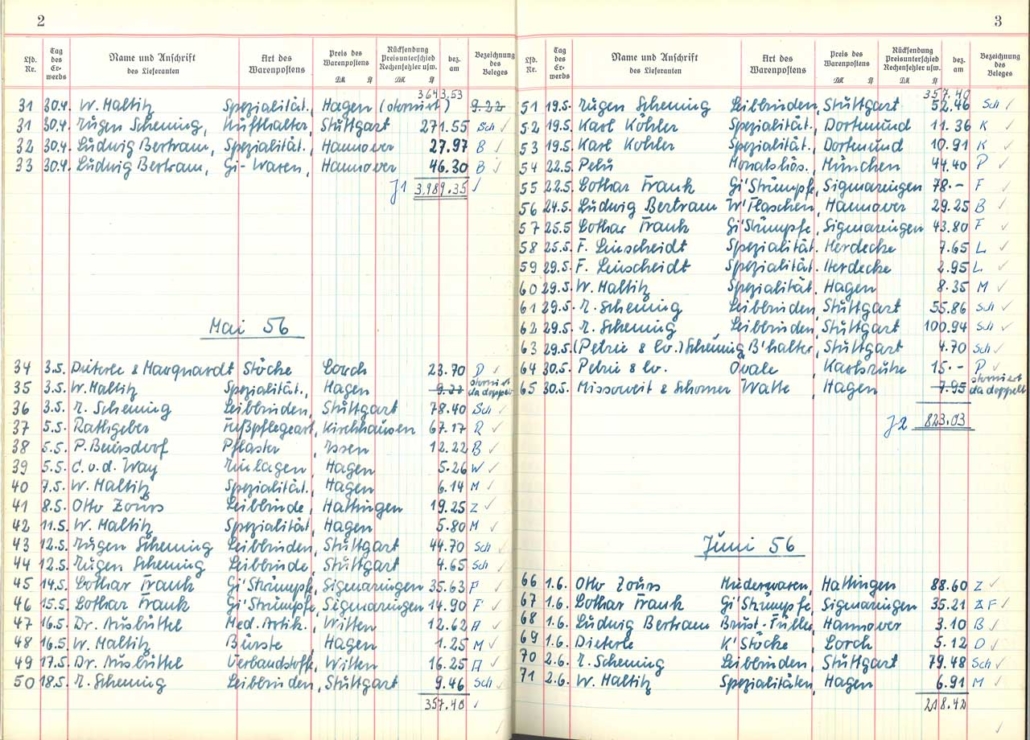 2
Lfd. Nr. Tag des Er- werbs Name und Anschrift des Lieferanten Art des Warenpostens Preis des Warenpostens DM ₰ Rücksendung Preisunterschied Rechenfehler usw. DM ₰ bez. am Bezeichnung des Beleges
3643,53
31 30.4. W. Maltitz Spezialität., Hagen (storniert) 9.22
31 30.4. Eugen Scheuing, Hüfthalter, Stuttgart 271.55 Sch ✓
32 30.4. Ludwig Bertram, Spezialität., Hannover 27.97 B ✓
33 30.4. Ludwig Bertram, Gi-Waren, Hannover 46.30 B ✓
J1 3.989.35 ✓
Mai 56
34 3.5. Dieterle & Marquardt Stöcke Lorch 23.70 D ✓
35 3.5. W. Maltitz Spezialität., Hagen 9.27 storniert da doppelt
36 3.5. E. Scheuing Leibbinden, Stuttgart 78.40 Sch ✓
37 5.5. Rathgeber Fußpflegeart., Kirchhausen 67.17 R ✓
38 5.5. P. Beiersdorf Pflaster, Essen 12.22 B ✓
39 5.5. C. v. d. Way Einlagen, Hagen 5.26 W ✓
40 7.5. W. Maltitz Spezialität., Hagen 6.14 M ✓
41 8.5. Otto Zours Leibbinde, Hattingen 19.25 Z ✓
42 11.5. W. Maltitz Spezialität, Hagen 5.80 M ✓
43 12.5. Eugen Scheuing Leibbinden, Stuttgart 44.70 Sch ✓
44 12.5. Eugen Scheuing Leibbinde, Stuttgart 4.65 Sch ✓
45 14.5. Lothar Frank Gi'Strümpf., Sigmaringen 35.63 F ✓
46 15.5. Lothar Frank Gi'Strümpfe, Sigmaringen 14.90 F ✓
47 16.5. Dr. Ausbüttel Med. Artik., Witten 12.62 A ✓
48 16.5. W. Maltitz Bürste, Hagen 1.25 M ✓
49 17.5. Dr. Ausbüttel Verbandstoffe, Witten 16.25 A ✓
50 18.5. E. Scheuing Leibbinden, Stuttgart 9.46 Sch ✓
357.40 ✓
3
Lfd. Nr. Tag des Er- werbs Name und Anschrift des Lieferanten Art des Warenpostens Preis des Warenpostens DM ₰ Rücksendung Preisunterschied Rechenfehler usw. DM ₰ bez. am Bezeichnung des Beleges
357.40
51 19.5. Eugen Scheuing Leibbinden, Stuttgart 52.46 Sch ✓
52 19.5. Karl Köhler Spezialität., Dortmund 11.36 K ✓
53 19.5. Karl Köhler Spezialität., Dortmund 10.91 K ✓
54 22.5. Peku Monatshös., München 44.40 P ✓
55 22.5. Lothar Frank Gi'Strümpf., Sigmaringen 78.-- F ✓
56 24.5. Ludwig Bertram W'Flaschen, Hannover 29.25 B ✓
57 25.5 Lothar Frank Gi'Strümpfe, Sigmaringen 43.80 F ✓
58 25.5. F. Linscheidt Spezialität. Herdecke 7.65 L ✓
59 29.5. F. Linscheidt Spezialität. Herdecke 2.95 L ✓
60 29.5. W. Maltitz Spezialität., Hagen 8.35 M ✓
61 29.5. E. Scheuing Leibbinden, Stuttgart 55.86 Sch ✓
62 29.5. E. Scheuing Leibbinden, Stuttgart 100.94 Sch ✓
63 29.5. (Petrie & Co.) Scheuing B'halter, Stuttgart 4.70 Sch ✓
64 30.5. Petrie & Co. Ovale, Karlsruhe 15.-- P ✓
65 30.5. Missoweit & Schorner Watte, Hagen 7.95 storniert da doppelt
J2 823.03
Juni 56
66 1.6. Otto Zours Miederwaren, Hattingen 88.60 Z ✓
67 1.6. Lothar Frank Gi'Strümpfe, Sigmaringen 35.21 F ✓
68 1.6. Ludwig Bertram Brust-Fülle, Hannover 3.10 B ✓
69 1.6. Dieterle K'Stöcke, Lorch 5.12 D ✓
70 2.6. E. Scheuing Leibbinden, Stuttgart 79.48 Sch ✓
71 2.6. W. Maltitz Spezialitäten, Hagen 6.91 M ✓
218.42